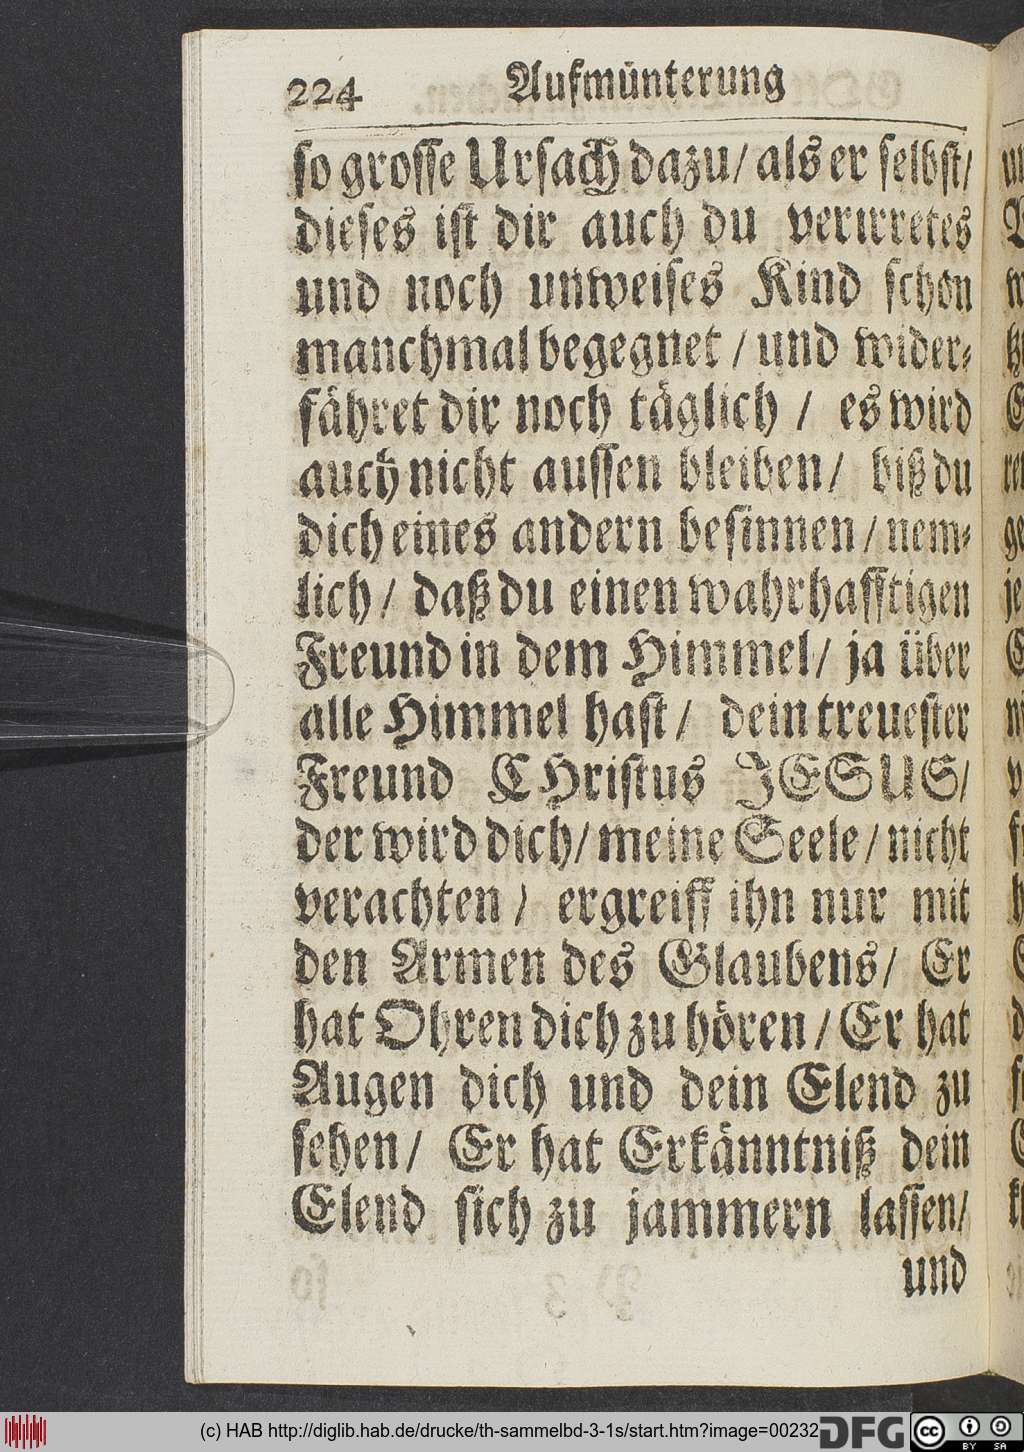 224 Aufmünterung
so grosse Ursach dazu/ als er selbst/
dieses ist dir auch du verirretes
und noch unweises Kind schon
manchmal begegnet / und wider-
fähret dir noch täglich / es wird
auch nicht aussen bleiben/ biß du
dich eines andern besinnen / nem-
lich / daß du einen wahrhafftigen
Freund in dem Himmel/ ja über
alle Himmel hast / dein treuester
Freund CHristus JESUS/
der wird dich/ meine Seele / nicht
verachten / ergreiff ihn nur mit
den Armen des Glaubens/ Er
hat Ohren dich zu hören / Er hat
Augen dich und dein Elend zu
sehen / Er hat Erkänntniß dein
Elend sich zu jammern lassen/
und
(c) HAB http://diglib.hab.de/drucke/th-sammelbd-3-1s/start.htm?image=00232
DFG
cc BY SA